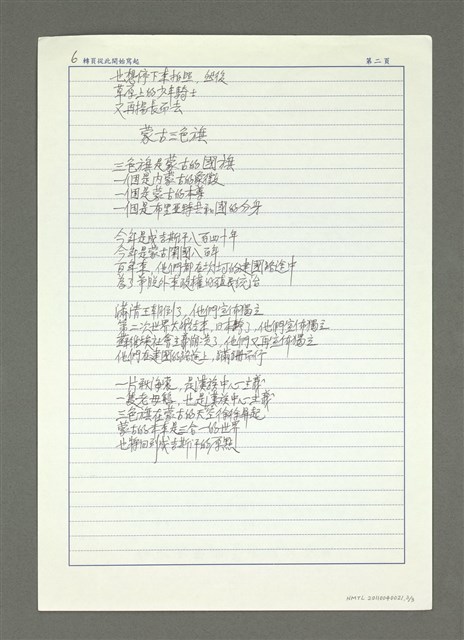 6 轉頁從此開始寫起
第二頁
也想停下來拍照,然後
草原上的少年騎士
又再揚長而去
蒙古三色旗
三色旗是蒙古的國旗
一個是內蒙古的象徵
一個是蒙古的本尊
一個是布里亞特共和國的分身
今年是成吉斯汗八百四十年
今年是蒙古開國八百年
百年來,他們都在次次的建國路途中
為了爭脫外來政權的殖民統治
滿清王朝倒了,他們宣佈獨立
第二次世界大戰結束,日本輸了,他們宣佈獨立
蘇維埃社會主義崩潰了,他們又再宣佈獨立
他們在建國的路途上,蹣跚而行
一片秋海棠,是漢族中心主義
一隻老母雞,也是漢族中心主義
三色旗在蒙古的天空冉冉昇起
蒙古的未來是三合一的世界
也將回到成吉斯汗的原點
NMTL 20110040021, 2/3